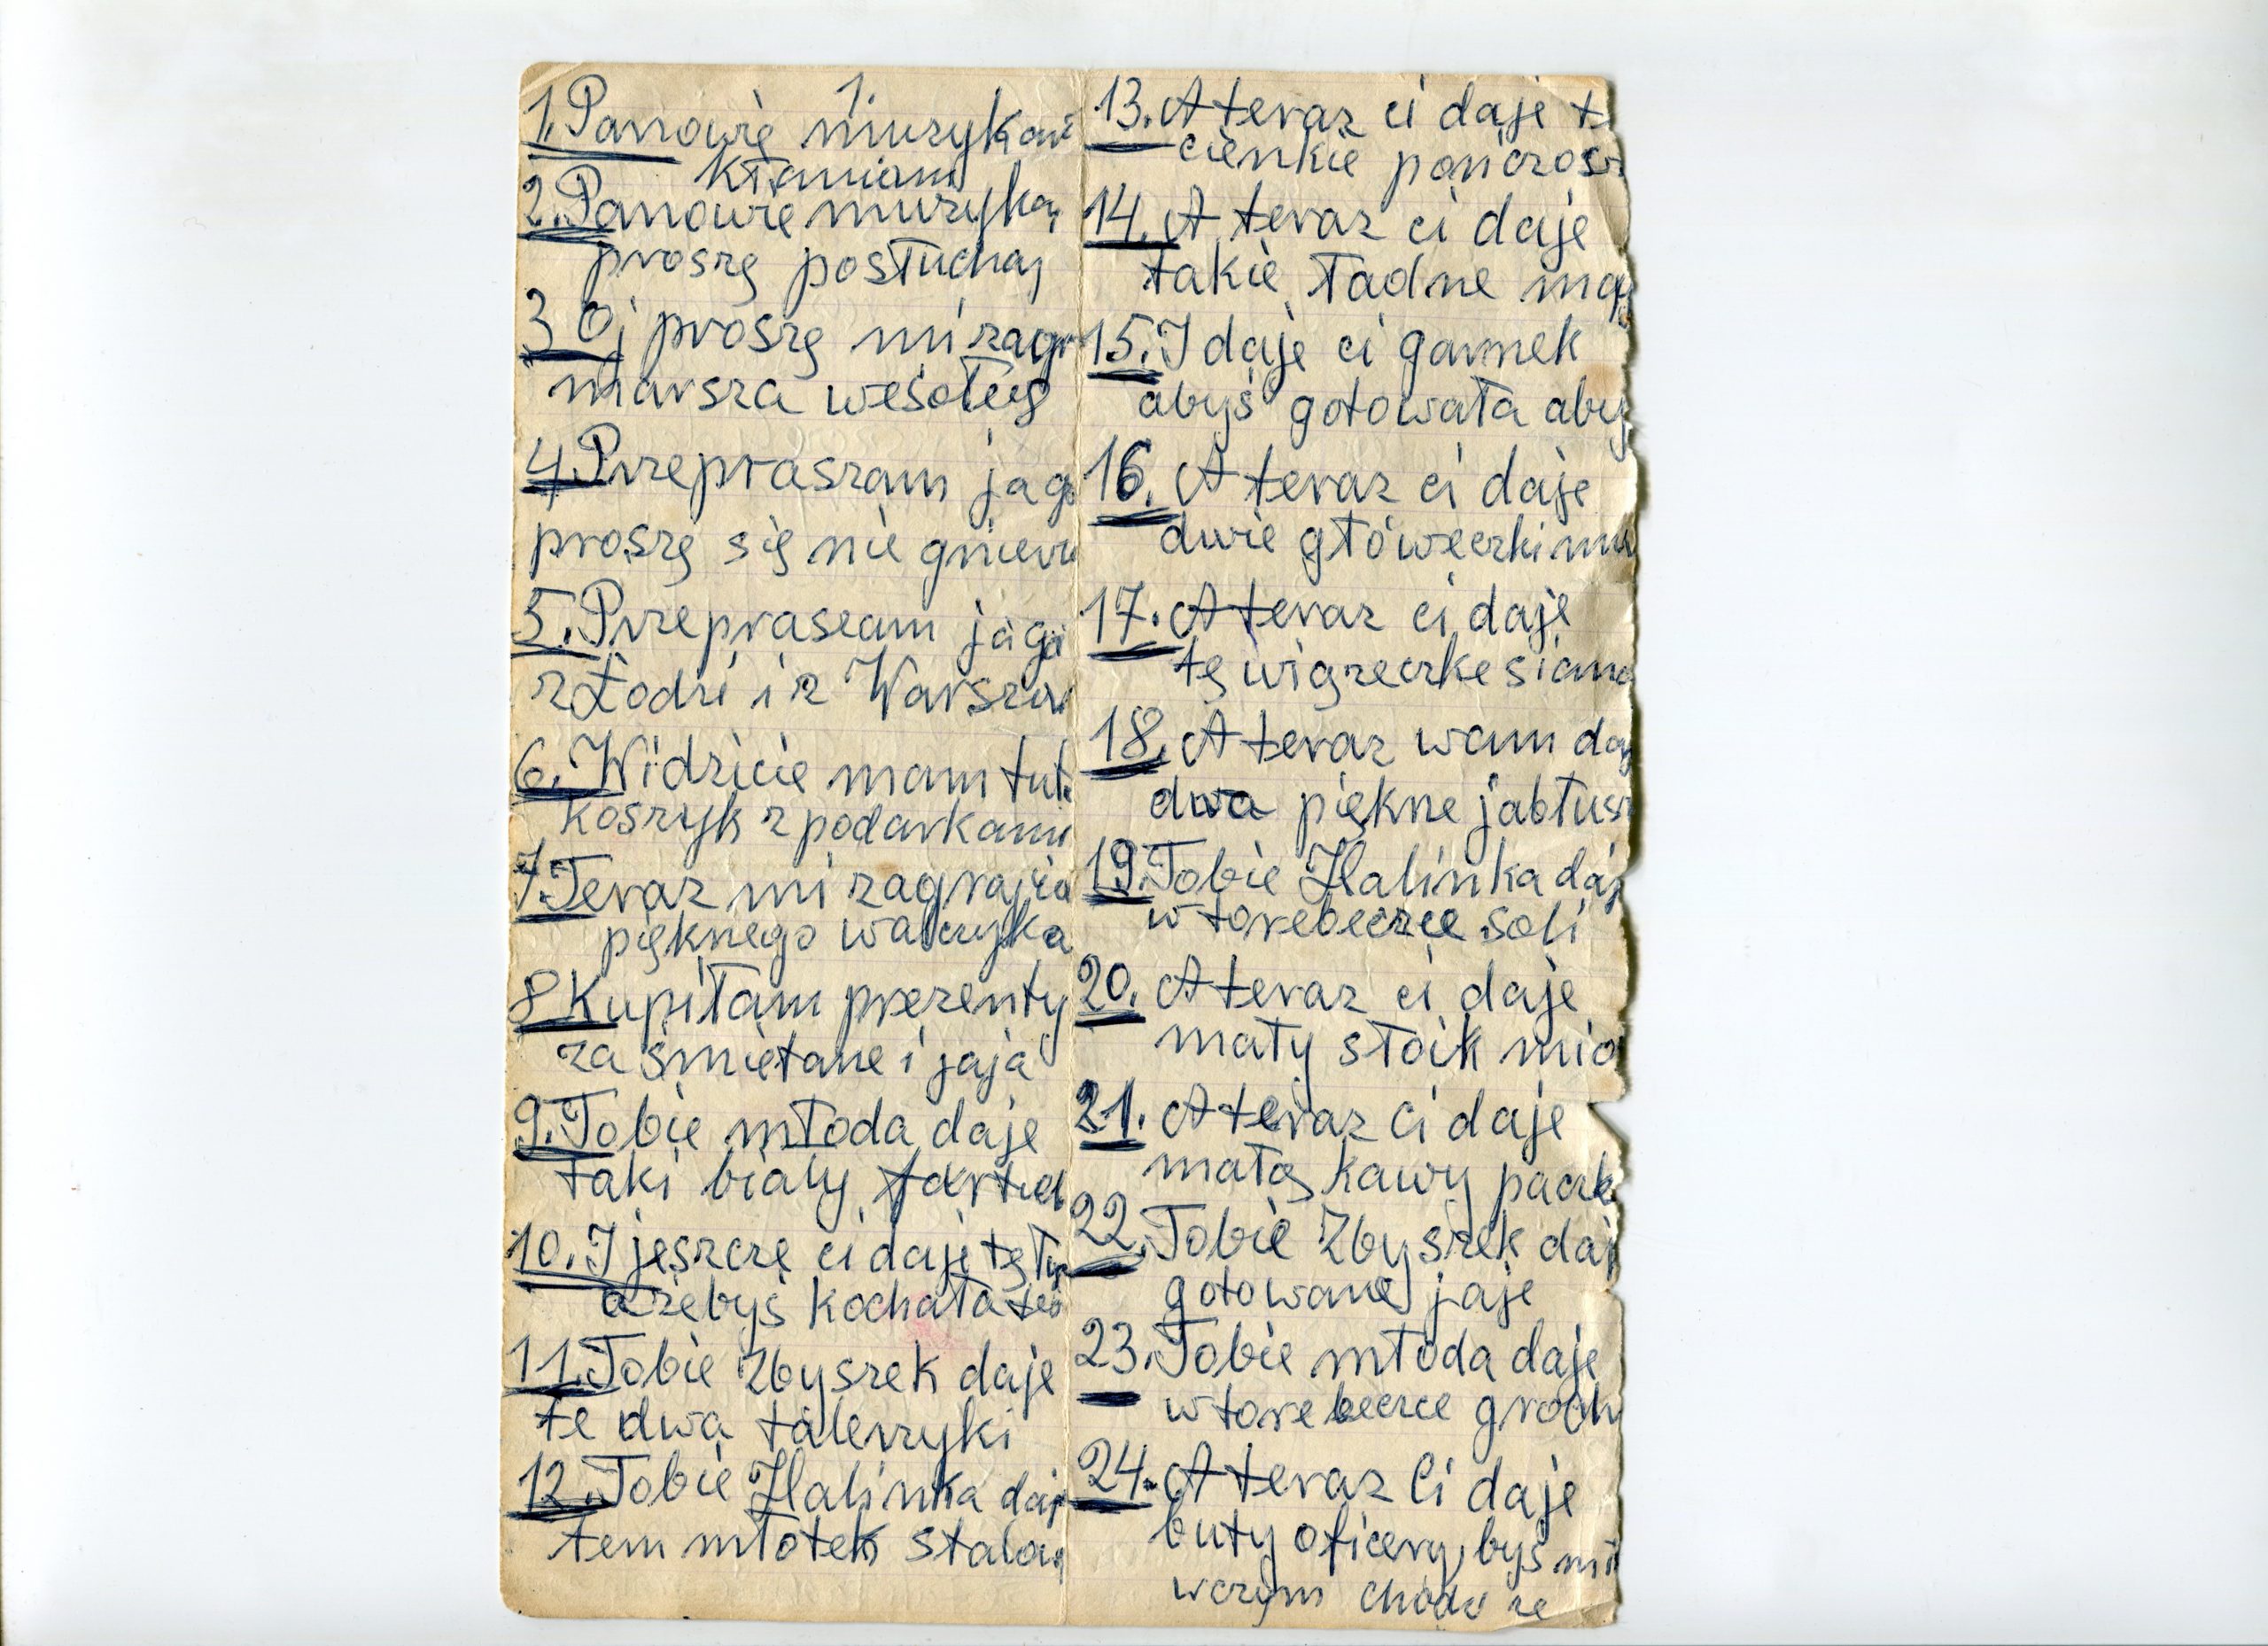 1.
1. Panowie muzykan
kłaniam
2. Panowie muzyka
proszę posłuchaj
3 Oj proszę mi zagr
marsza wesołeg
4 Przepraszam jag
proszę się nie gniew
5. Przepraszam jag
z Łodzi i z Warszaw
6. Widzicie mam tut
koszyk z podarkami
7. Teraz mi zagrajcie
pięknego walczyka
8 Kupiłam prezenty
za śmietane i jaja
9. Tobie młoda daje
taki biały
10. I jeszcze ci daje tę
ażebyś kochała teś
11. Tobie Zbyszek daje
te dwa talerzyki
12. Tobie Halinka daj
tem młotek stalow
13. A teraz ci daje t
cienkie pończosz
14. A teraz ci daje
takie ładne maj
15. I daje ci garnek
abyś gotowała aby
16. A teraz ci daje
dwie główeczki
17. A teraz ci daje
tę wiązeczke siana
18. A teraz wam daj
dwa piękne jabłusz
19. Tobie Halinka daj
w torebeczce soli
20. A teraz ci daje
mały słoik mio
21. A teraz Ci daje
małą kawy paczk
22. Tobie Zbyszek daj
gotowane jaje
23. Tobie młoda daje
w torebeczce groch
24. A teraz Ci daje
buty oficery, byś mi
wczym chodz